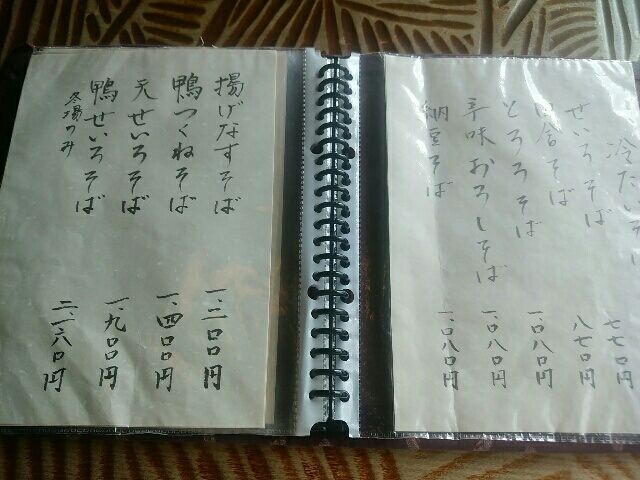 冷たいそ
せいろそば 七七〇円
田舎そば 八七〇円
とろろそば 一、〇八〇円
辛味おろしそば 一、〇八〇円
納豆そば 一、〇八〇円
揚げなすそば 一、二〇〇円
鴨つくねそば 一、四〇〇円
天せいろそば 一、九〇〇円
鴨せいろそば 二、一六〇円
冬場のみ